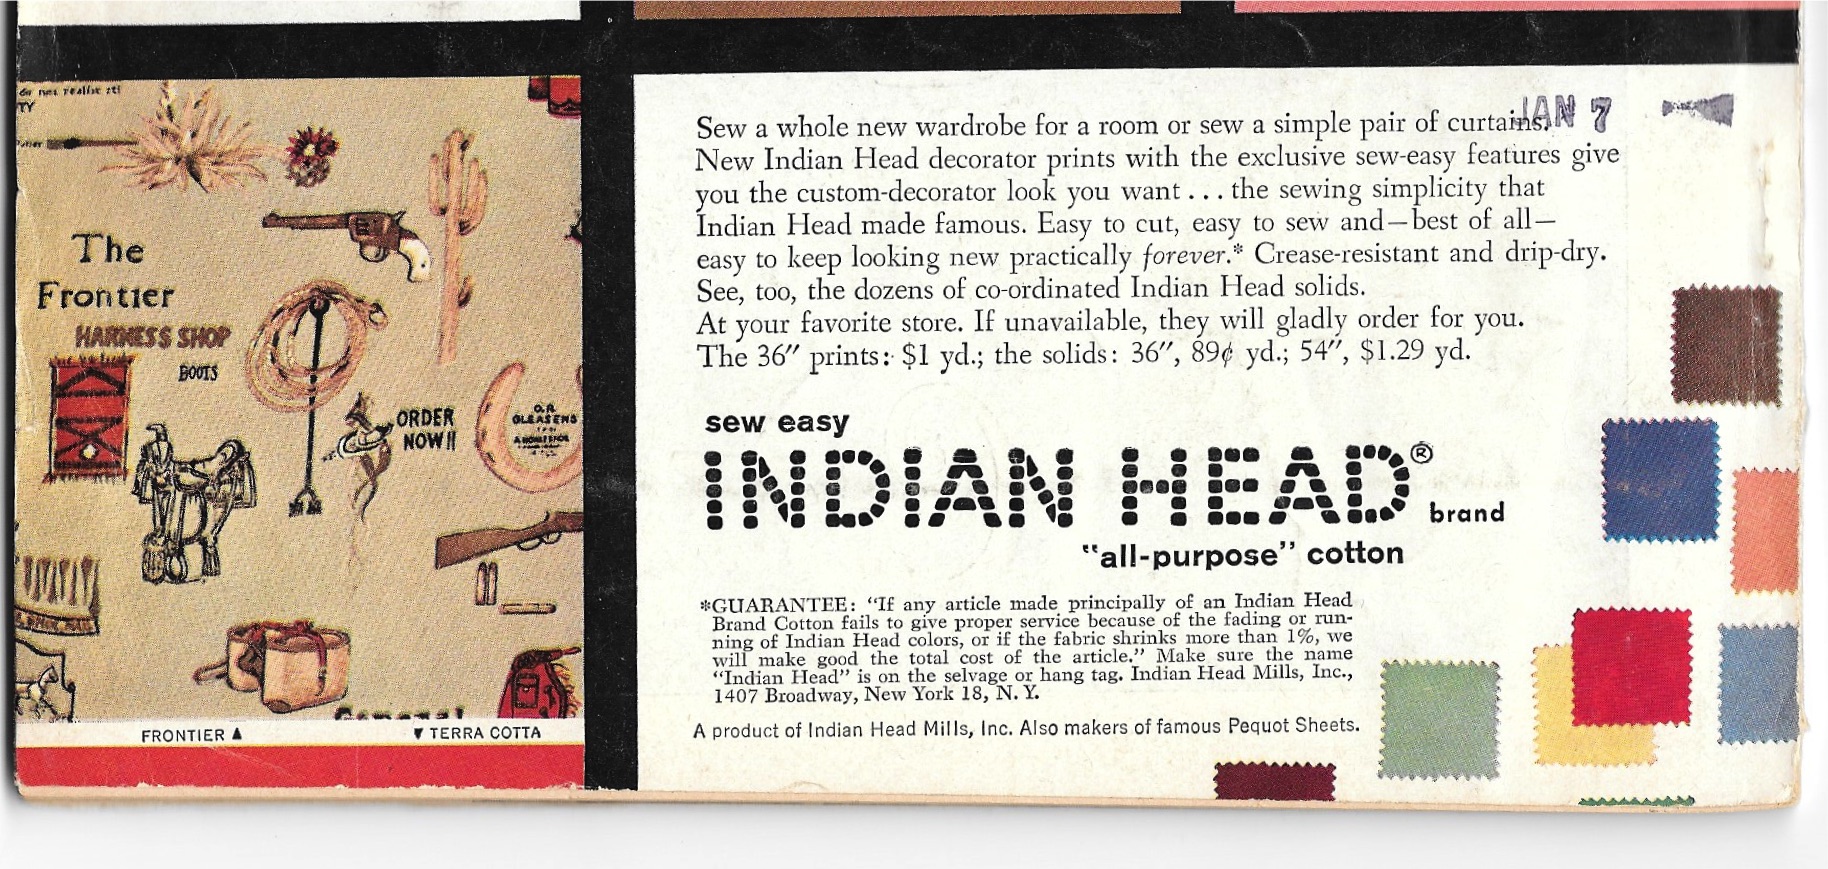 do not realize it!
TY
The
Frontier
HARNESS SHOP
BOOTS
ORDER
NOW!!
O.R.
GLEASENS
General
FRONTIER ▲
▼ TERRA COTTA
JAN 7
Sew a whole new wardrobe for a room or sew a simple pair of curtains.
New Indian Head decorator prints with the exclusive sew-easy features give
you the custom-decorator look you want ... the sewing simplicity that
Indian Head made famous. Easy to cut, easy to sew and—best of all—
easy to keep looking new practically forever.* Crease-resistant and drip-dry.
See, too, the dozens of co-ordinated Indian Head solids.
At your favorite store. If unavailable, they will gladly order for you.
The 36″ prints: $1 yd.; the solids: 36″, 89¢ yd.; 54″, $1.29 yd.
sew easy
INDIAN HEAD®
brand
"all-purpose" cotton
*GUARANTEE: "If any article made principally of an Indian Head
Brand Cotton fails to give proper service because of the fading or run-
ning of Indian Head colors, or if the fabric shrinks more than 1%, we
will make good the total cost of the article." Make sure the name
"Indian Head" is on the selvage or hang tag. Indian Head Mills, Inc.,
1407 Broadway, New York 18, N. Y.
A product of Indian Head Mills, Inc. Also makers of famous Pequot Sheets.